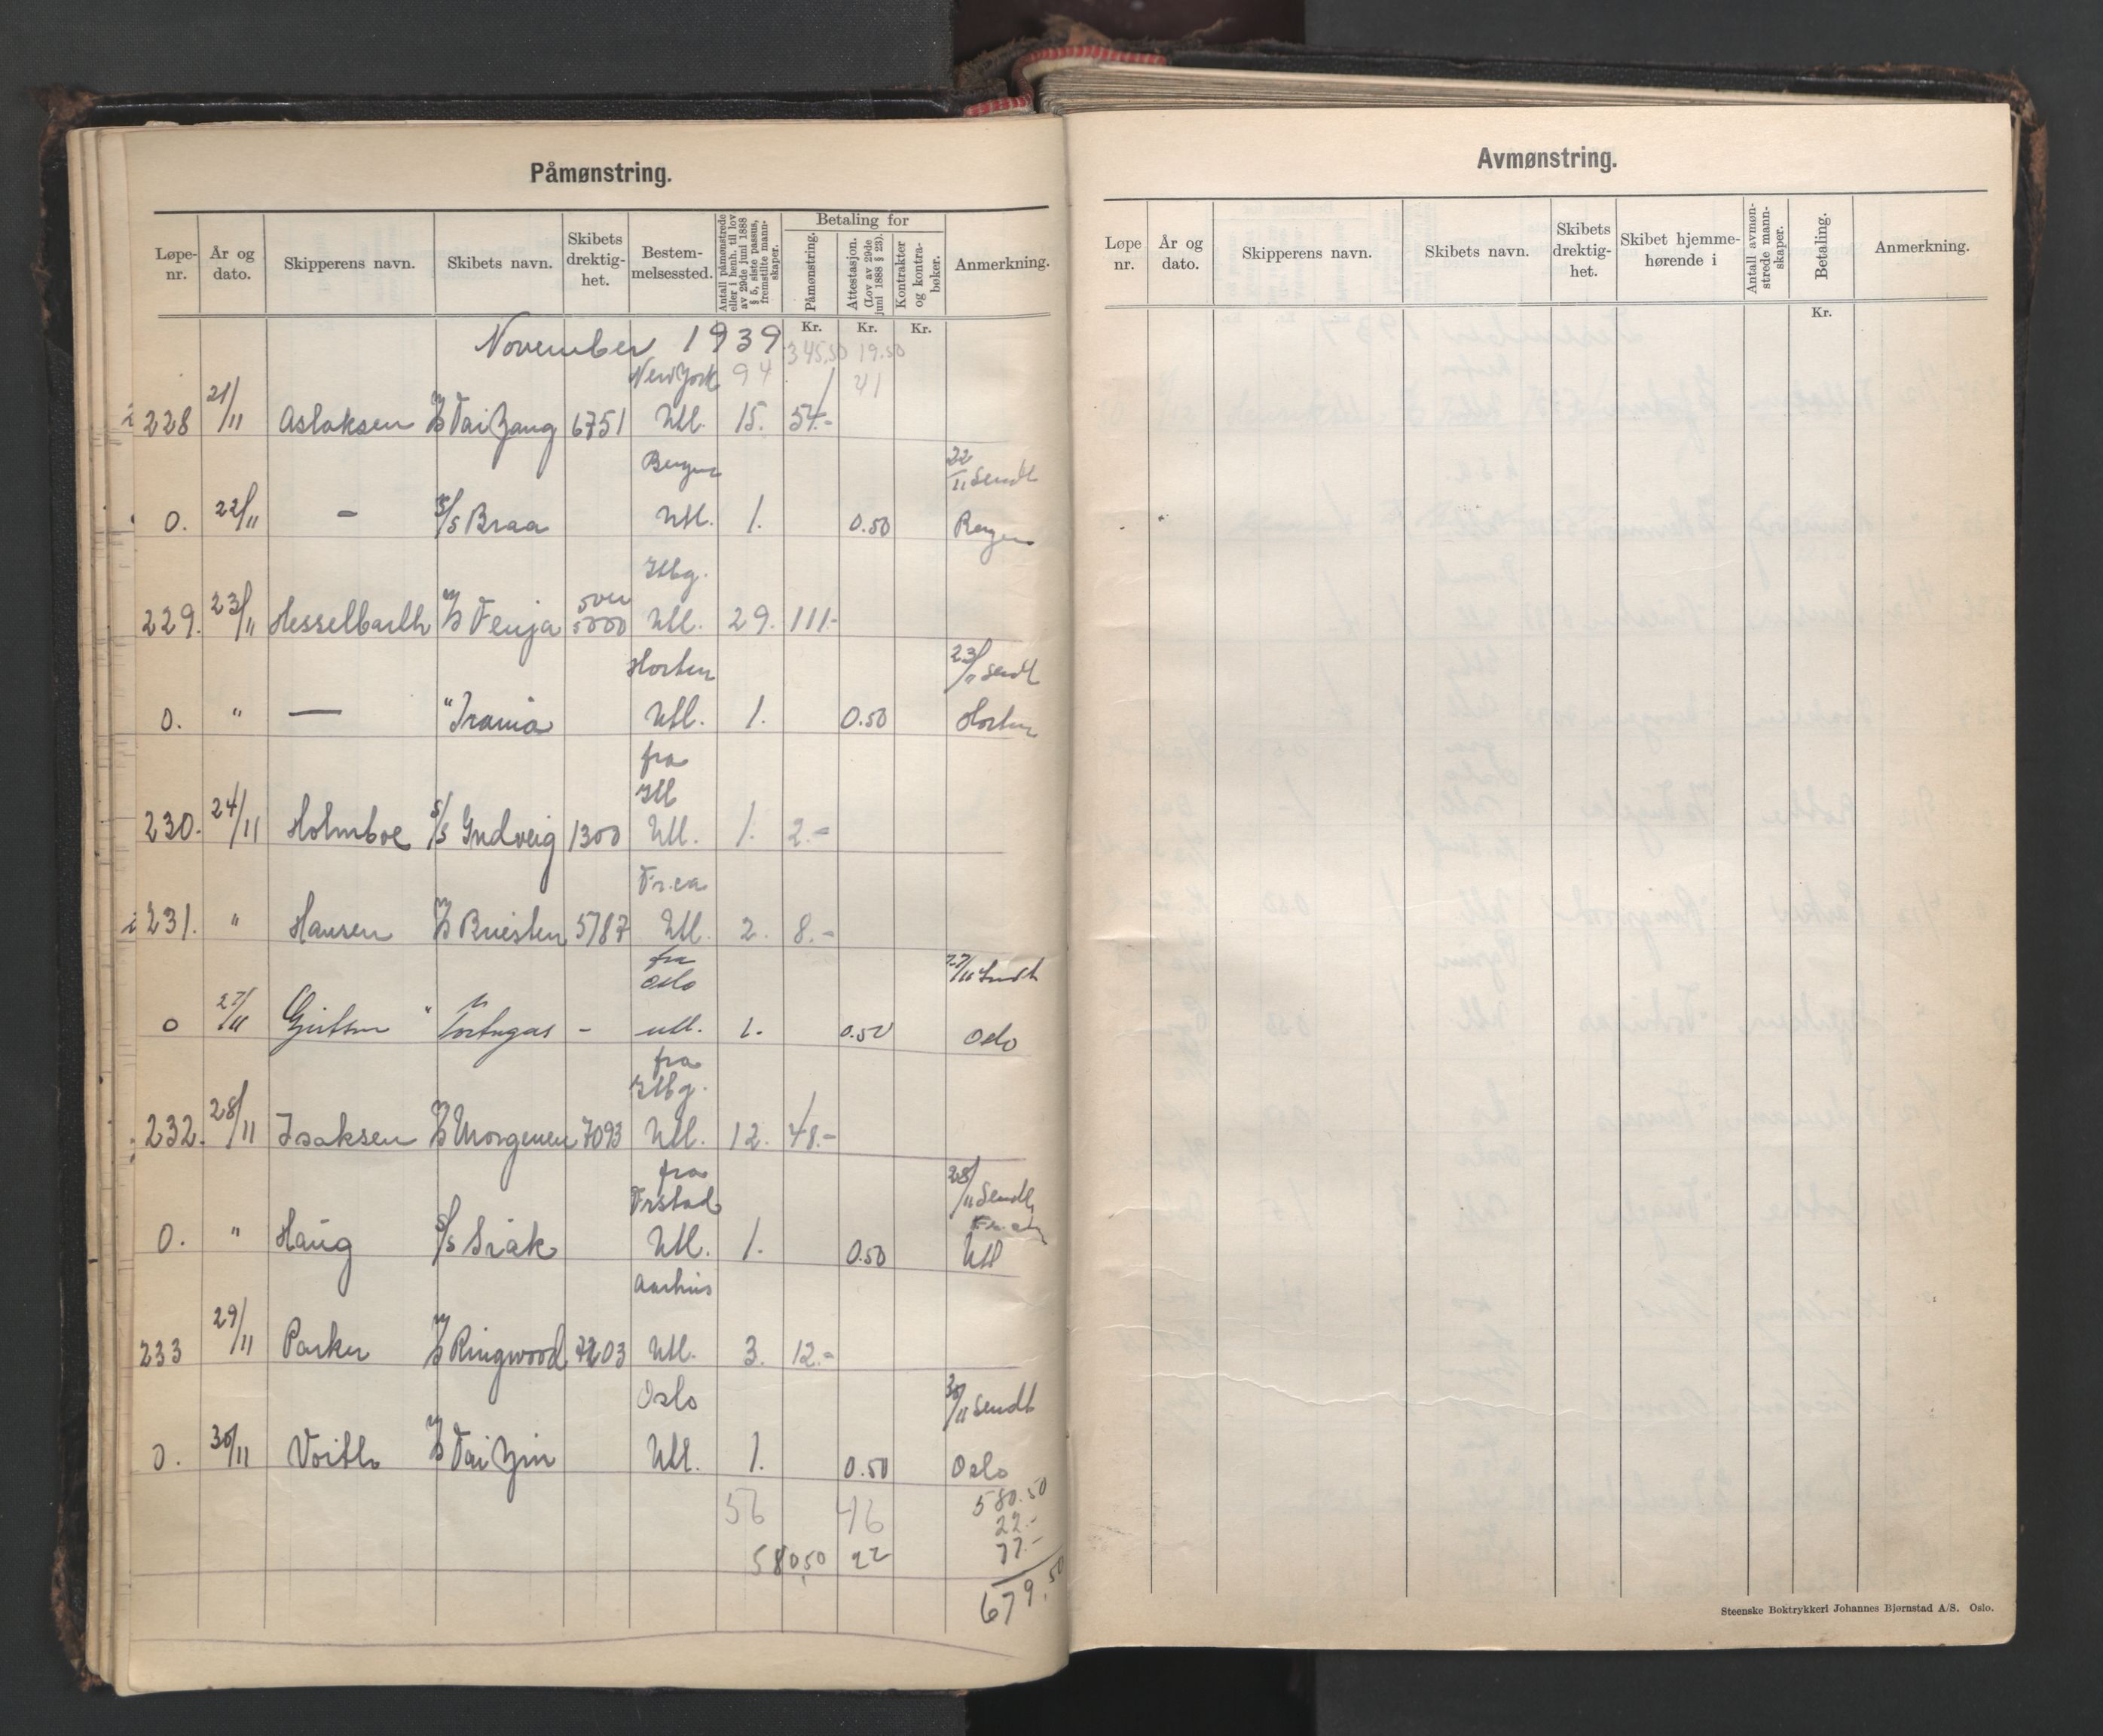 Påmønstring.
Løpe-
nr.
År og
dato.
Skipperens navn.
Skibets navn.
Skibets
drektig-
het.
Bestem-
melsessted.
Antall påmønstrede
eller i henh. til lov
av 29de juni 1888
§ 5, siste passus,
fremstilte mann-
skaper.
Betaling for
Påmønstring.
Attestasjon.
(Lov av 29de
juni 1888 § 23).
Kontrakter
og kontra-
bøker.
Anmerkning.
Kr. Kr. Kr.
November 1939 345,50 19.50
New York 94 41
228 21/11 Aslaksen M/S Tai Yang 6751 Utl. 15. 54.-
Bergen 22/11 Sendt
0. 22/11 - S/S Braa Utl. 1. 0.50 Bergen
Hbg.
229. 23/11 Hesselbarth M/S Fenja over 5000 Utl. 29. 111.-
Horten 23/11 Sendt
0. " — " Irania Utl. 1. 0.50 Horten
fra
230. 24/11 Holmboe S/S Gudveig 1300 Utl. 1. 2.-
231. " Hansen M/S 5787 Utl. 2. 8.-
fra
Oslo 27/11 Sendt
0 27/11 M/S Tortugas - utl. 1. 0.50 Oslo
fra
Hbg.
232. 28/11 Isaksen M/S Morgenen 7093 Utl. 12. 48.-
fra
Frstad 28/11 Sendt
0. " Haug S/S Siak Utl. 1. 0.50 Utl
Aarhus
233 29/11 Parker M/S Ringwood 7203 Utl. 3. 12.-
Oslo 30/11 Sendt
0. 30/11 M/S Tai Yin Utl. 1. 0.50 Oslo
56 46 580.50
22.-
580,50 22 77.-
679,50
Avmønstring.
Løpe
nr.
År og
dato.
Skipperens navn.
Skibets navn.
Skibets
drektig-
het.
Skibet hjemme-
hørende i
Antall avmøn-
strede mann-
skaper.
Betaling.
Anmerkning.
Kr.
Steenske Boktrykkeri Johannes Bjørnstad A/S. Oslo.